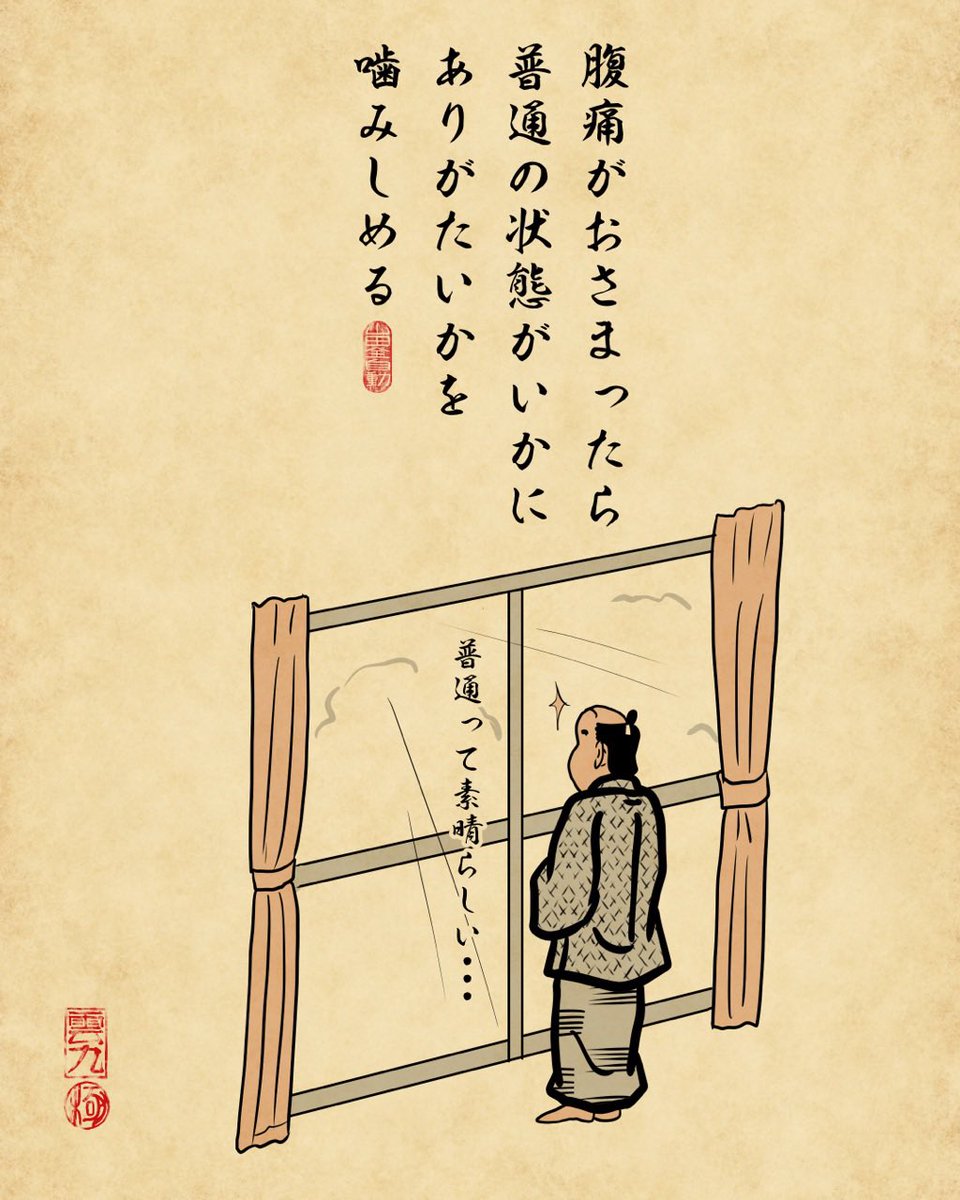 腹痛がおさまったら
普通の状態がいかに
ありがたいかを
噛みしめる
普通って素晴らしい・・・